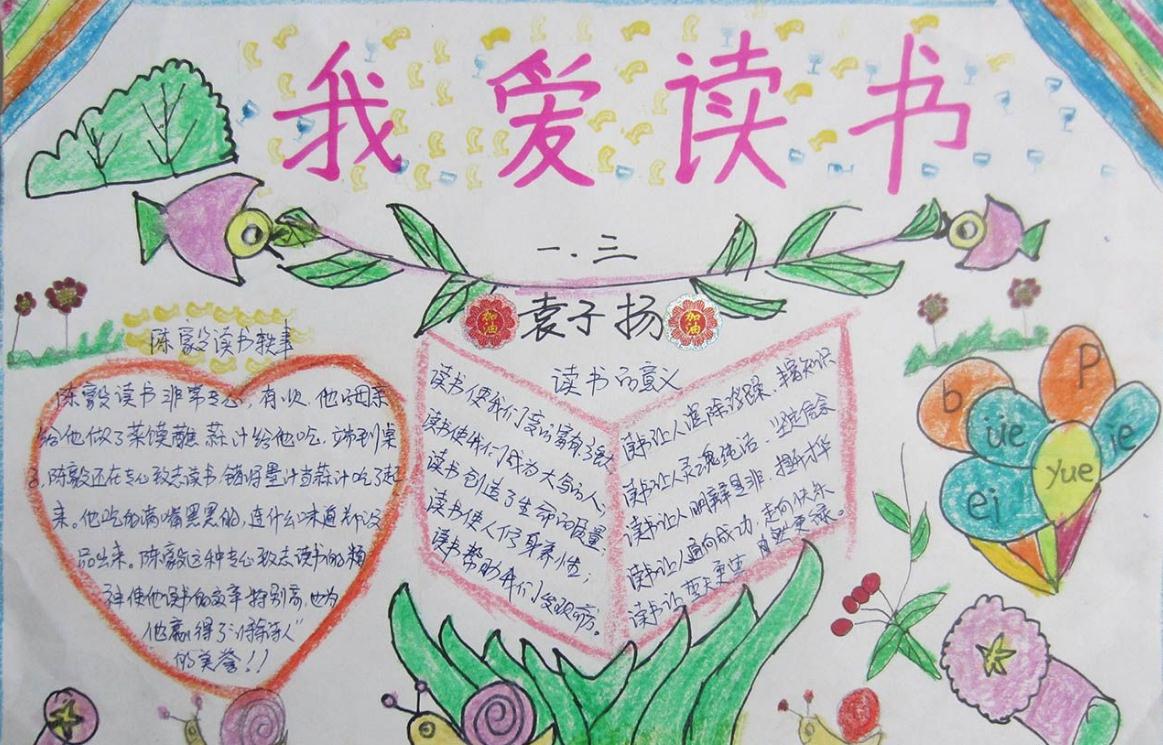 我爱读书
一.三
加油
袁子扬
加油
陈毅读书轶事
陈毅读书非常专心，有次，他母亲
给他做了菜馍蘸蒜汁给他吃，端到桌
陈毅还在专心致志读书，错将墨汁当蒜汁吃了起
来。他吃的满嘴黑黑的，连什么味道都没
品出来。陈毅这种专心致志读书的精
神使他读书的效率特别高，也为
他赢得了"诗人"
的美誉！！
读书的意义
读书使我们变的富有
读书使我们成为大写的人
读书创造了生命的质量；
读书使人修身养性；
读书帮助我们发现
读书让人消除浮躁、丰富知识
读书让人灵魂纯洁、坚定信念
读书让人明辨是非、提升才华
读书让人通向成功，走向快乐
读书让天更
b
P
üe
ie
yue
ei